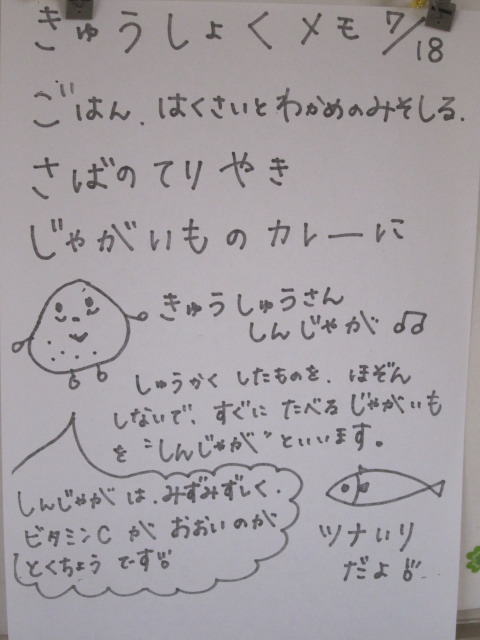 きゅうしょくメモ 7/18
ごはん、はくさいとわかめのみそしる、
さばのてりやき
じゃがいものカレーに
きゅうしゅうさん
しんじゃが ♫
しゅうかくしたものを、ほぞん
しないで、すぐにたべるじゃがいも
を“しんじゃが”といいます。
しんじゃがは、みずみずしく、
ビタミンCがおおいのが
とくちょうです!!
ツナいり
だよ!!